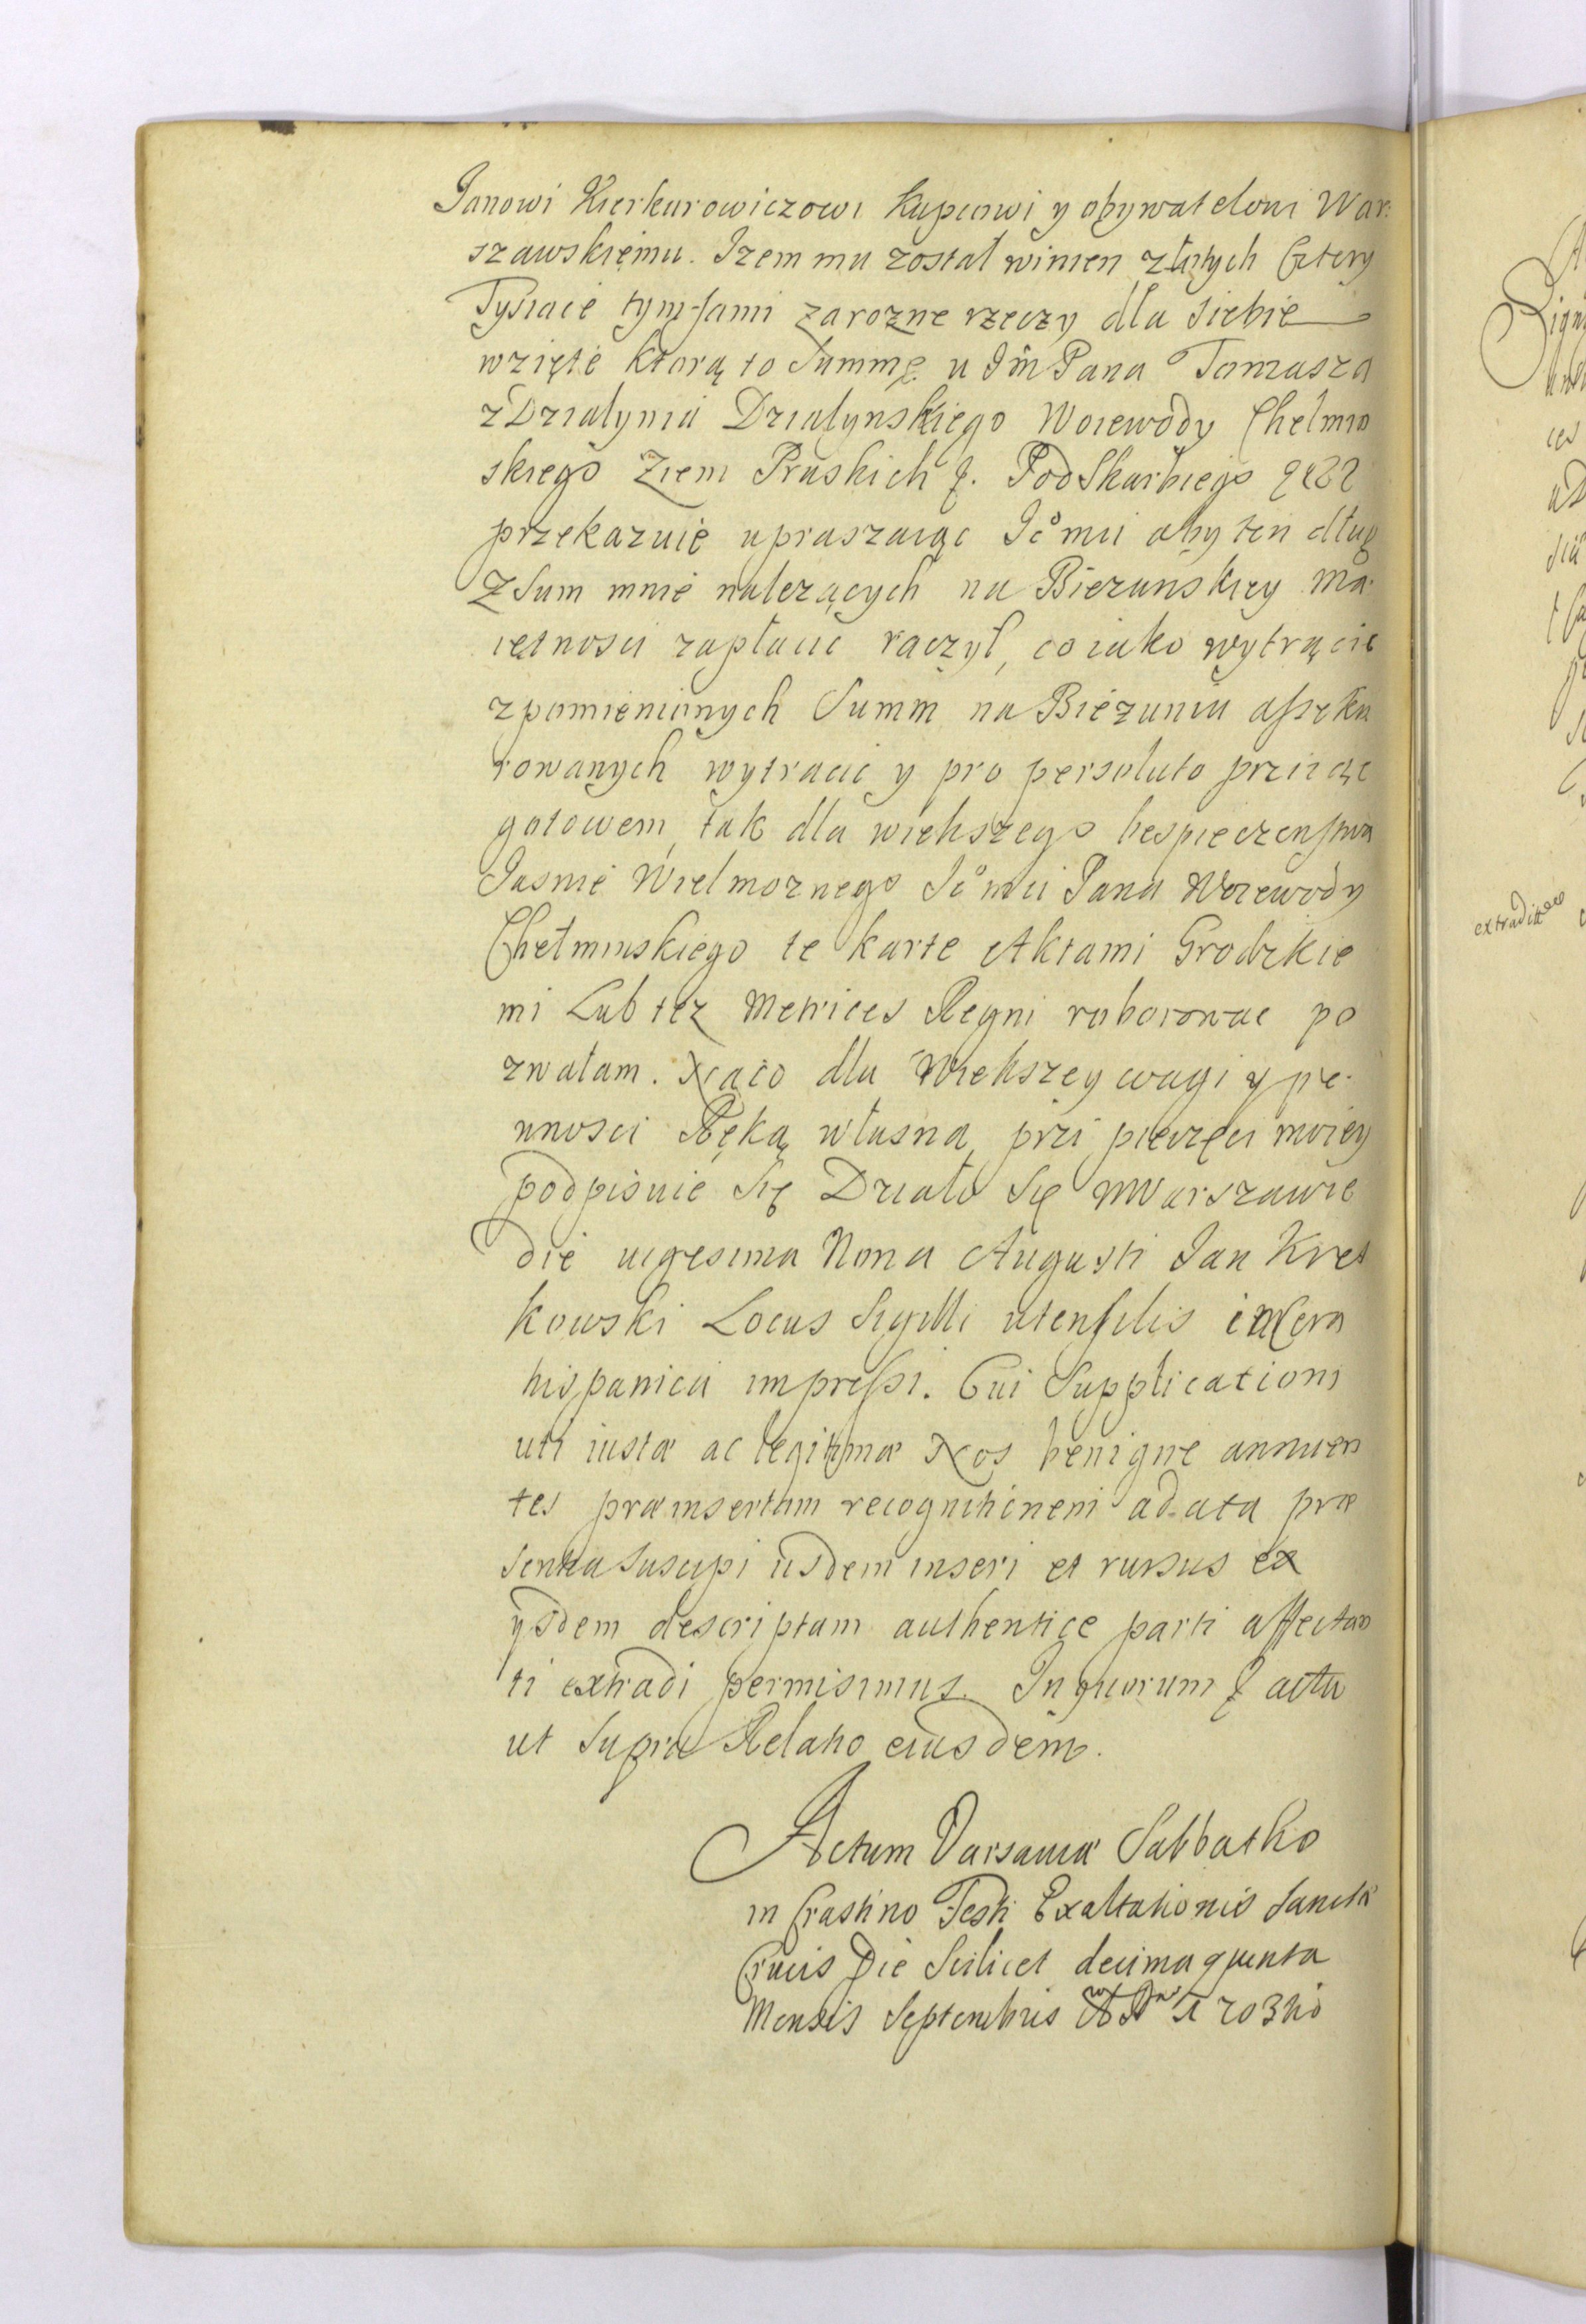 Janowi Kierkurowiczowi Kupcowi y obywatelowi War:
szawskięmu. Izem mu został winien złotych Cztery
Tysiące tymfami zarozne rzeczy dla siebie
wzięte ktorą to Summę u Jm̃ Pana Tomasza
z Działynia Działynskiego Woiewody Chełmin
skiego Ziem Pruskich P. Podskarbiego
przekazuię upraszaiąc Jc̊mci aby ten dług
z Sum mnie nalezących na Biezunskiey Ma.
iętnosci zapłacic raczył, co iako wytrącic
zpomienionych Summ na Biezuniu assęku
rowanych wytrącic y pro persoluto prziiąc
gotowem, tak dla większego bespieczenstwa
Jasnie Wielmoznego Jc̊mci Pana Woiewody
Chełminskiego te karte Aktami Grodzkie
mi Lub tez Metrices Regni roborowac po
zwalam. Naco dla Większey wagi y pe.
wnosci Ręką własną, przi pieczęci moiey
podpisuie Się Działo Się w Warszawie
die uigesima Nona Augusti Jan Kret
kowski Locus Sigilli utensilis in Cera
hispanica impressi. Cui Supplicationi
uti iustæ ac legitimæ Nos benigne annuen
tes præinsertam recognitionem ad acta præ
sentia suscipi iisdem inseri et rursus ex
ijsdem descriptam authentice parti affectan
ti extradi permisimus. In quorum & acta
ut Supra Relatio eiusdem.
Actum Varsauiæ Sabbatho
in Crastino Festi Exaltationis Sanctæ
Crucis Die Scilicet decima quinta
Mensis Septembris
extraditt